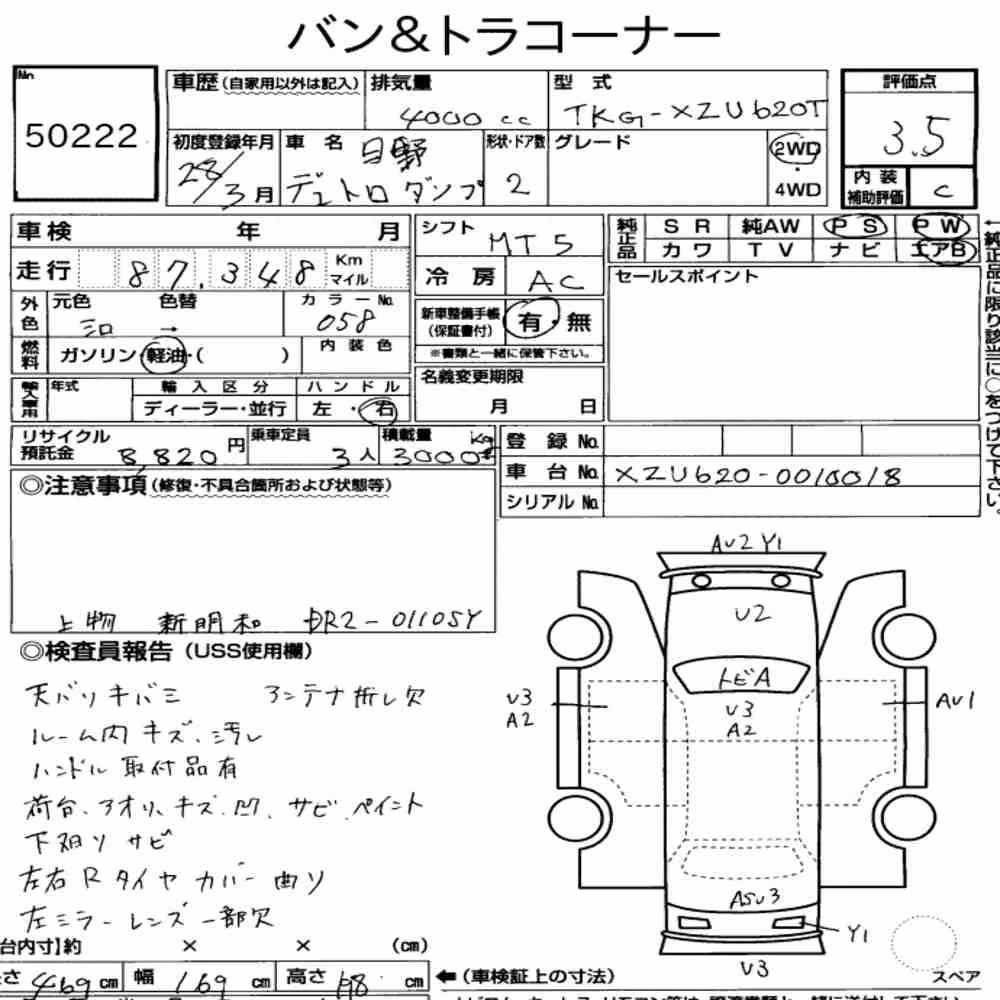 バン&トラコーナー
No 50222
車歴(自家用以外は記入) 排気量 4000 cc 型式 TKG-XZU620T 評価点 3.5
初度登録年月 28/3月 車名 日野 デュトロダンプ 形状・ドア数 2 グレード 2WD・4WD 内装補助評価 C
車検 年 月 シフト MT5 純正品 SR 純AW PS PW
カワ TV ナビ エアB
走行 87,348 Km マイル 冷房 AC セールスポイント
外色 元色 → 色替 カラーNo. 058 新車整備手帳(保証書付) 有・無
※書類と一緒に保管下さい。
燃料 ガソリン・軽油・( ) 内装色
名義変更期限 月 日
輸入車用 年式 輸入区分 ディーラー・並行 ハンドル 左・右
リサイクル預託金 8,820円 乗車定員 3人 積載量 3000 Kg
登録No.
車台No. XZU620-0010018
シリアルNo.
←純正品に限り該当に○をつけて下さい。
◎注意事項(修復・不具合箇所および状態等)
上物 新明和 DR2-01105Y
◎検査員報告(USS使用欄)
天バリキバミ アンテナ折レ欠
ルーム内キズ、汚レ
ハンドル取付品有
荷台、アオリ、キズ、凹、サビ、ペイント
下廻リサビ
左右Rタイヤカバー曲リ
左ミラーレンズ一部欠
AU2 Y1
U2
トビA
U3
A2
U3
A2
AU1
ASU3
Y1
U3
スペア
台内寸】約 × × (cm)
長さ 469 cm 幅 169 cm 高さ 198 cm ←(車検証上の寸法)